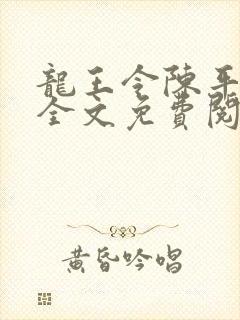 龍王令陳平
全文免費閱
黃昏吟唱